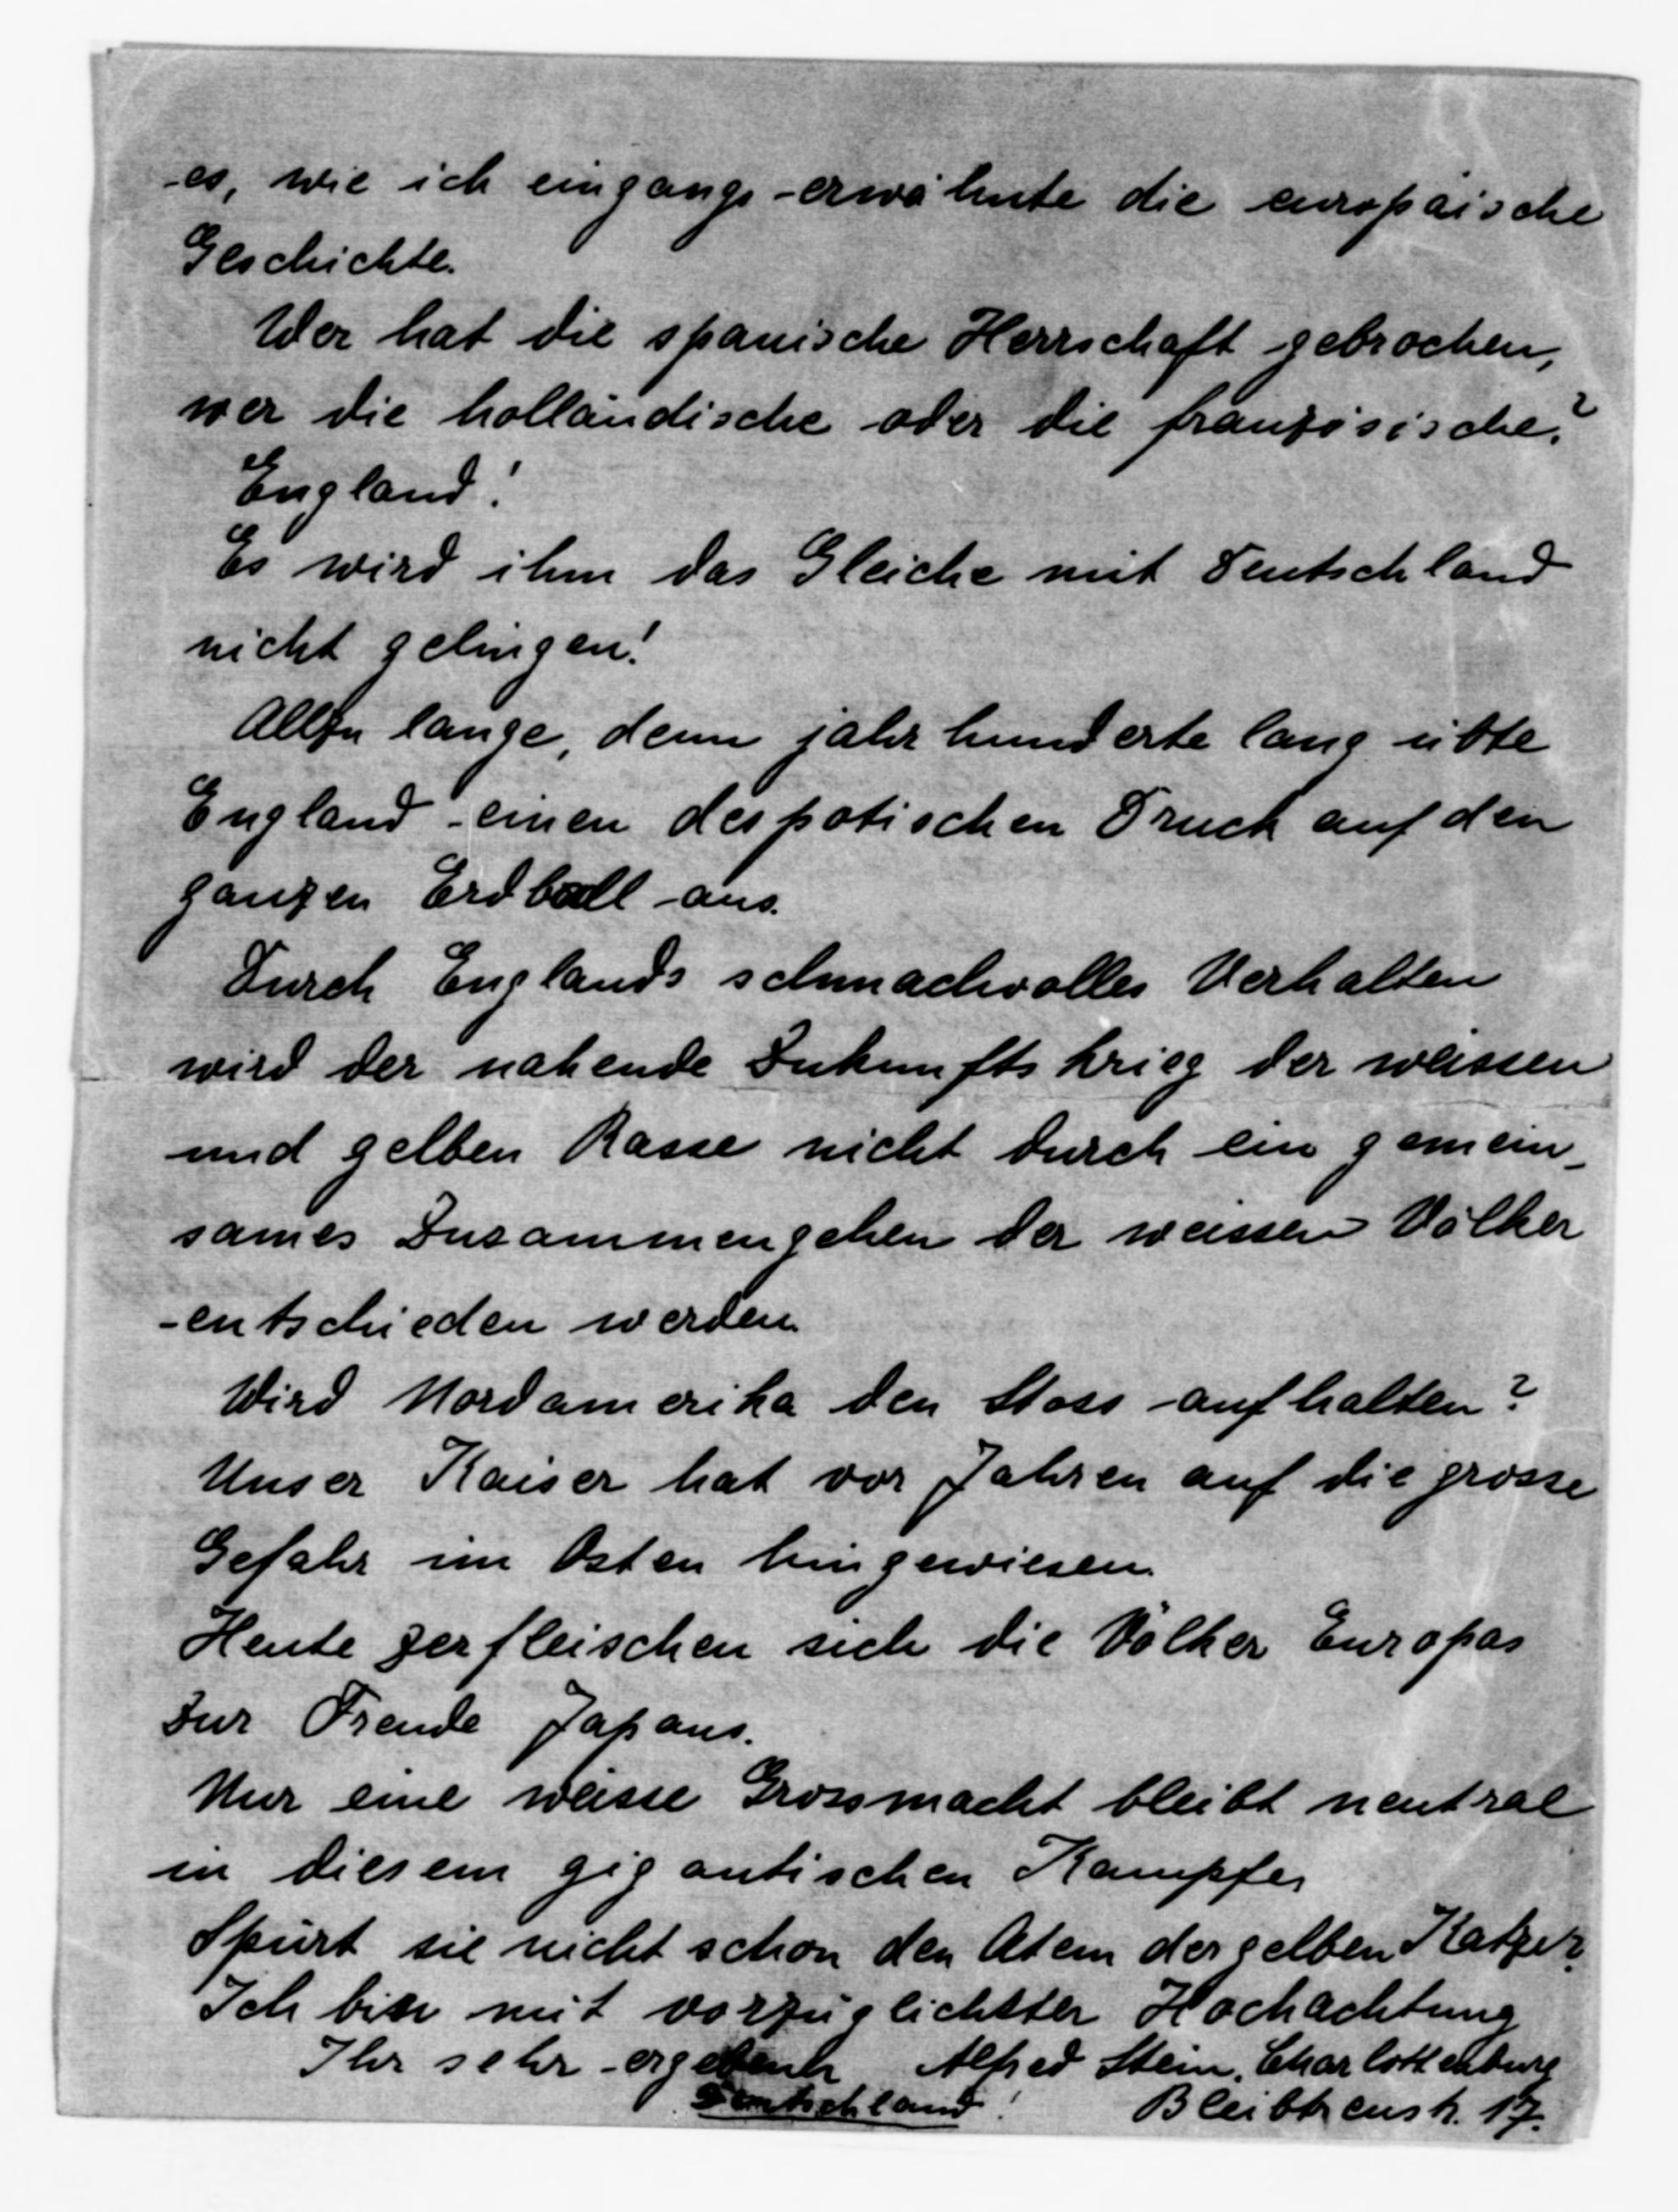 es, wie ich eingangs erwähnte die europäische
Geschichte.
Wer hat die spanische Herrschaft gebrochen,
wer die holländische oder die französische?
England!
Es wird ihm das Gleiche mit Deutschland
nicht gelingen!
Allzu lange, denn jahrhunderte lang übte
England einen despotischen Druck auf den
ganzen Erdball aus.
Durch Englands schmachvolles Verhalten
wird der nahende Zukunftskrieg der weissen
und gelben Rasse nicht durch ein gemein-
sames Zusammengehen der weissen Völker
entschieden werden.
Wird Nordamerika den Stoss aufhalten?
Unser Kaiser hat vor Jahren auf die grosse
Gefahr im Osten hingewiesen.
Heute zerfleischen sich die Völker Europas
zur Freude Japans.
Nur eine weisse Grossmacht bleibt neutral
in diesem gigantischen Kampfe,
Spürt sie nicht schon den Atem der gelben Katze?
Ich bin mit vorzüglichster Hochachtung
Ihr sehr ergebener Alfred Stein, Charlottenburg
Deutschland! Bleibtreustr. 17.